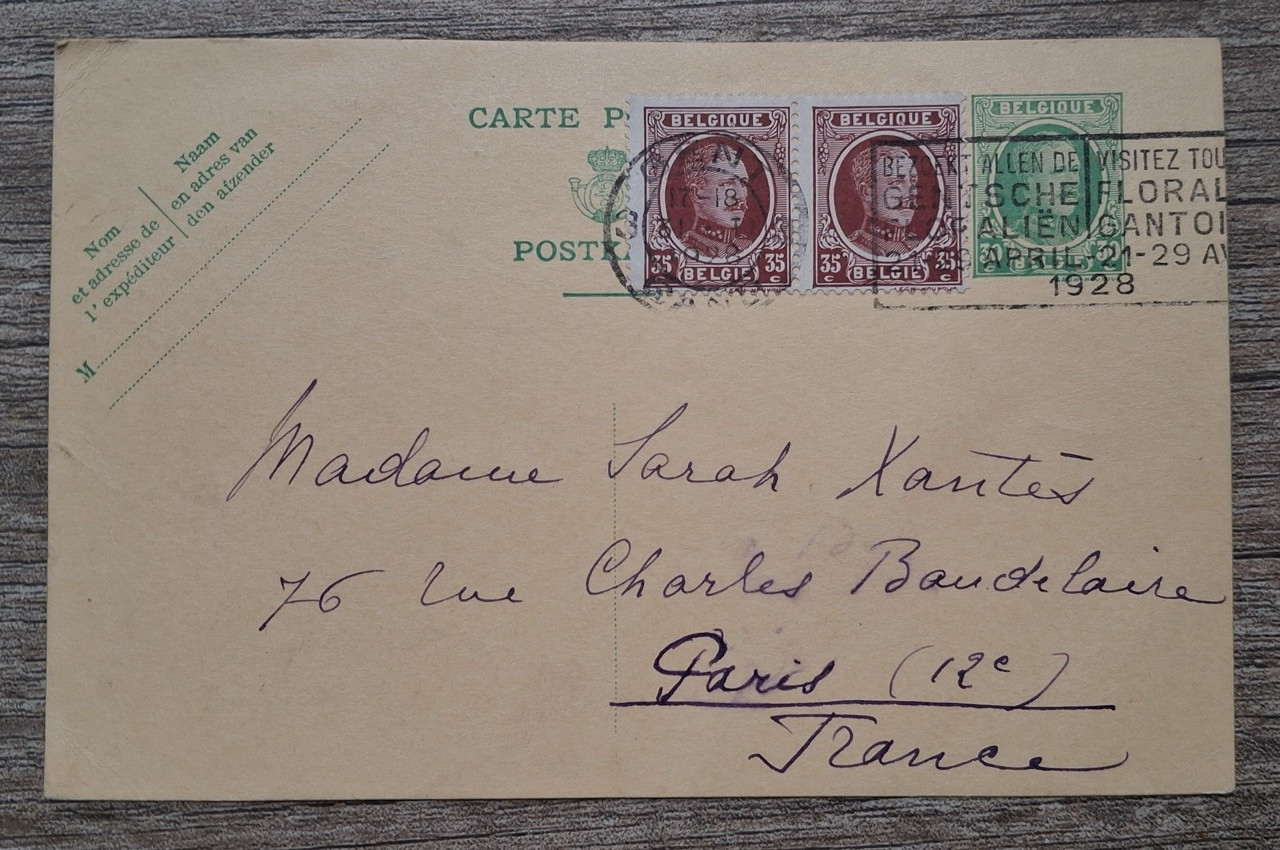 CARTE P
POSTK
Nom
et adresse de
l'expéditeur
Naam
en adres van
den afzender
M
BELGIQUE
35 35
c BELGIË c
BELGIQUE
35
c BELGIË c
BELGIQUE
17-18
BEZOEKT ALLEN DE
GENTSCHE
FLORALIËN
APRIL
VISITEZ TOU
FLORAL
GANTOI
-21-29 AV
1928
Madame Sarah Xantès
76 rue Charles Baudelaire
Paris (12e)
France